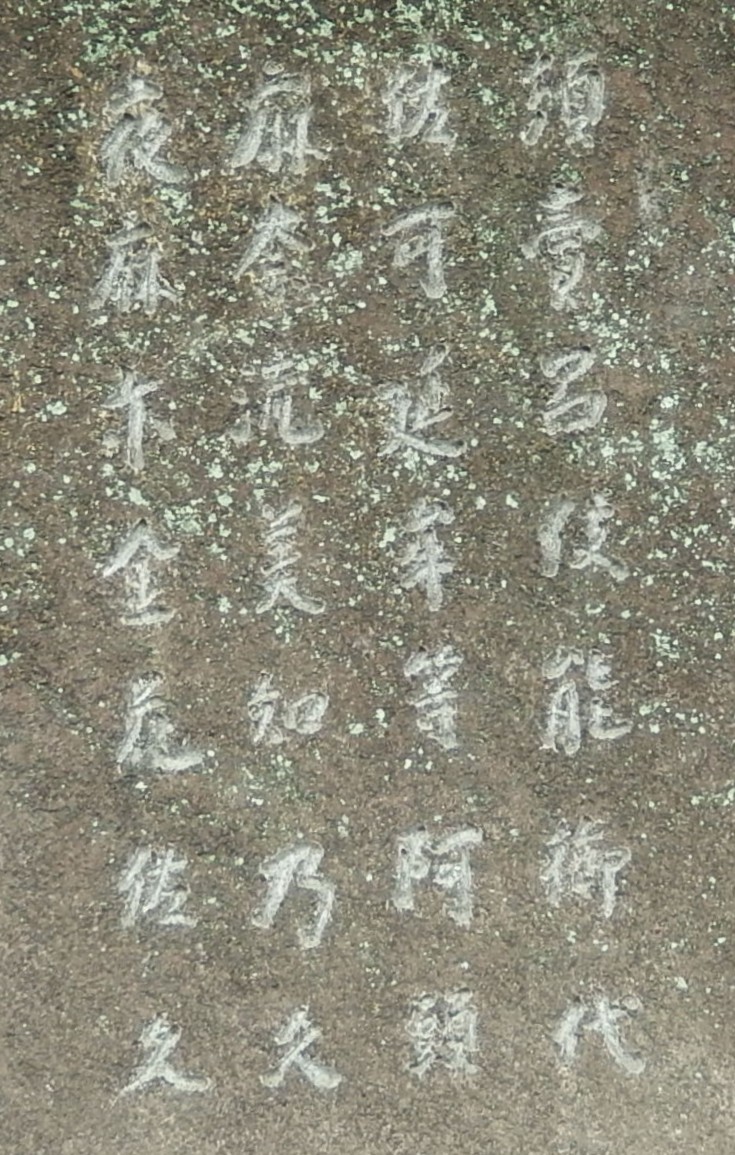 須賣呂伎能御代
佐可延牟等阿頭
麻奈流美知乃久
夜麻尓金花佐久